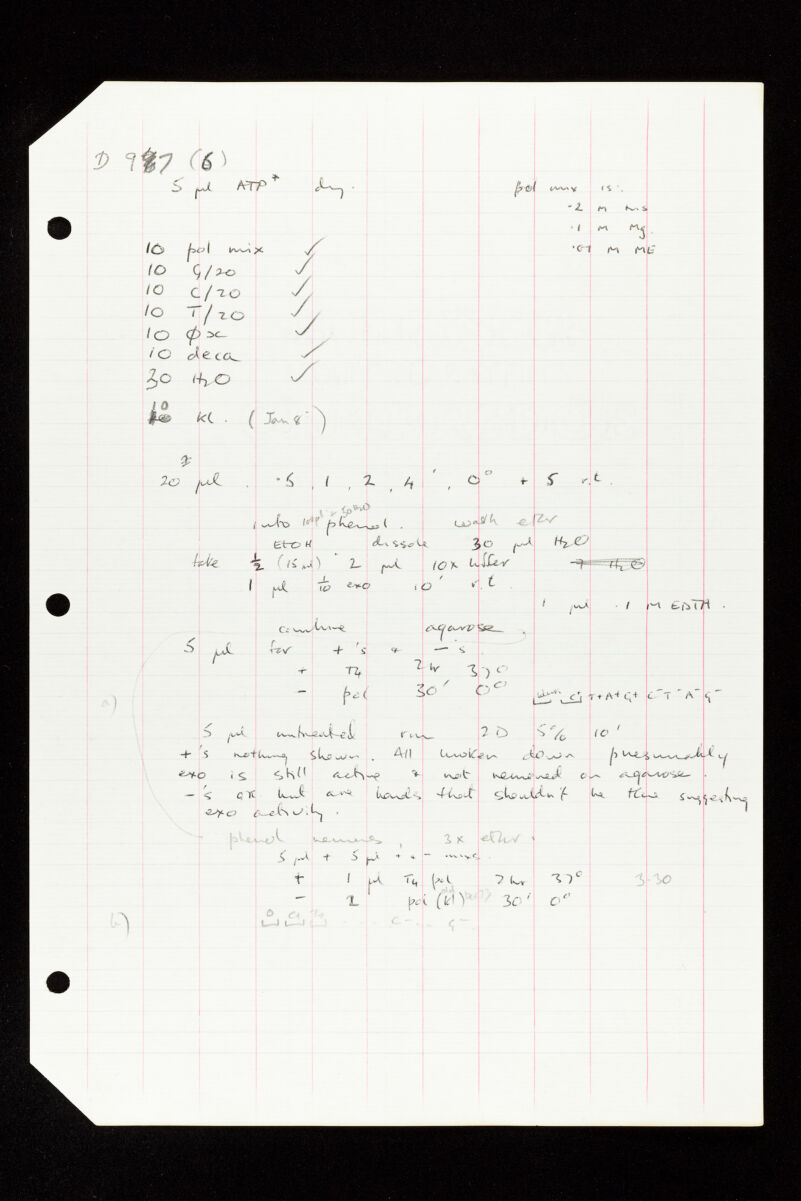 D 987 (6)
5 µl ATP* dry.
pol mix is:.
·2 M tris
·1 M Mg.
·01 M ME
10 pol mix ✓
10 G/20 ✓
10 C/20 ✓
10 T/20 ✓
10 φx ✓
10 deca ✓
30 H2O ✓
10 Kl. (Jan 8)
20 µl . ·5, 1, 2, 4', 0° + 5 r.t.
into phenol. wash ether
EtOH dissolve 30 µl H2O
take ½ (15 µl) 2 µl 10x buffer H2O
1 µl 1/10 exo 10' r.t.
1 µl ·1 M EDTA.
combine agarose.
5 µl for +'s & -'s.
+ T4 2 hr 37°
- pol 30' 0°
a)
C T+A+G+ C-T-A-G-
5 µl untreated run 2D 5% 10'
+'s nothing shown. All broken down presumably
exo is still active & not removed on agarose.
-'s ok but are bands that shouldn't be there suggesting
exo activity.
phenol removes, 3x ether.
5 µl + 5 µl + & - mixes.
+ 1 µl T4 pol 2 hr 37° 3-30
- 2 pol (Kl) old 30' 0°
b)
0 ... C- .. G-